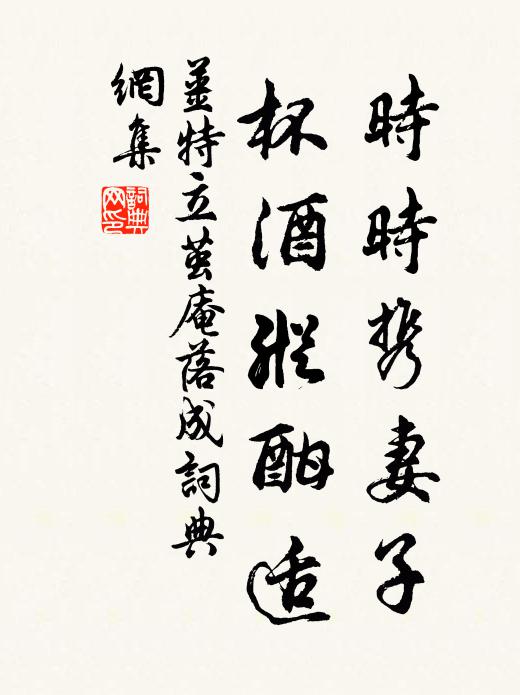 時時携妻子
杯酒縱酣适
姜特立茧庵落成詞典
網集
詞典網印